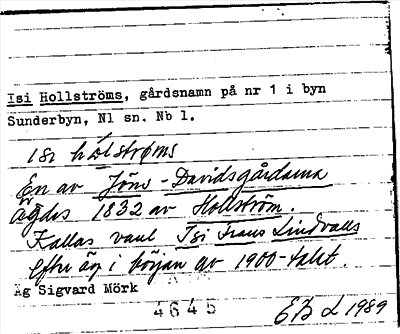 Isi Hollströms, gårdsnamn på nr 1 i byn
Sunderbyn, Nl sn. Nb l.
isi hòlströms
En av Jöns-Davidsgårdarna
Ägdes 1832 av Hollström.
Kallas vanl Isi Frans Lindvalls
Efter äg i början av 1900-talet.
Äg Sigvard Mörk
4645
EB L 1989